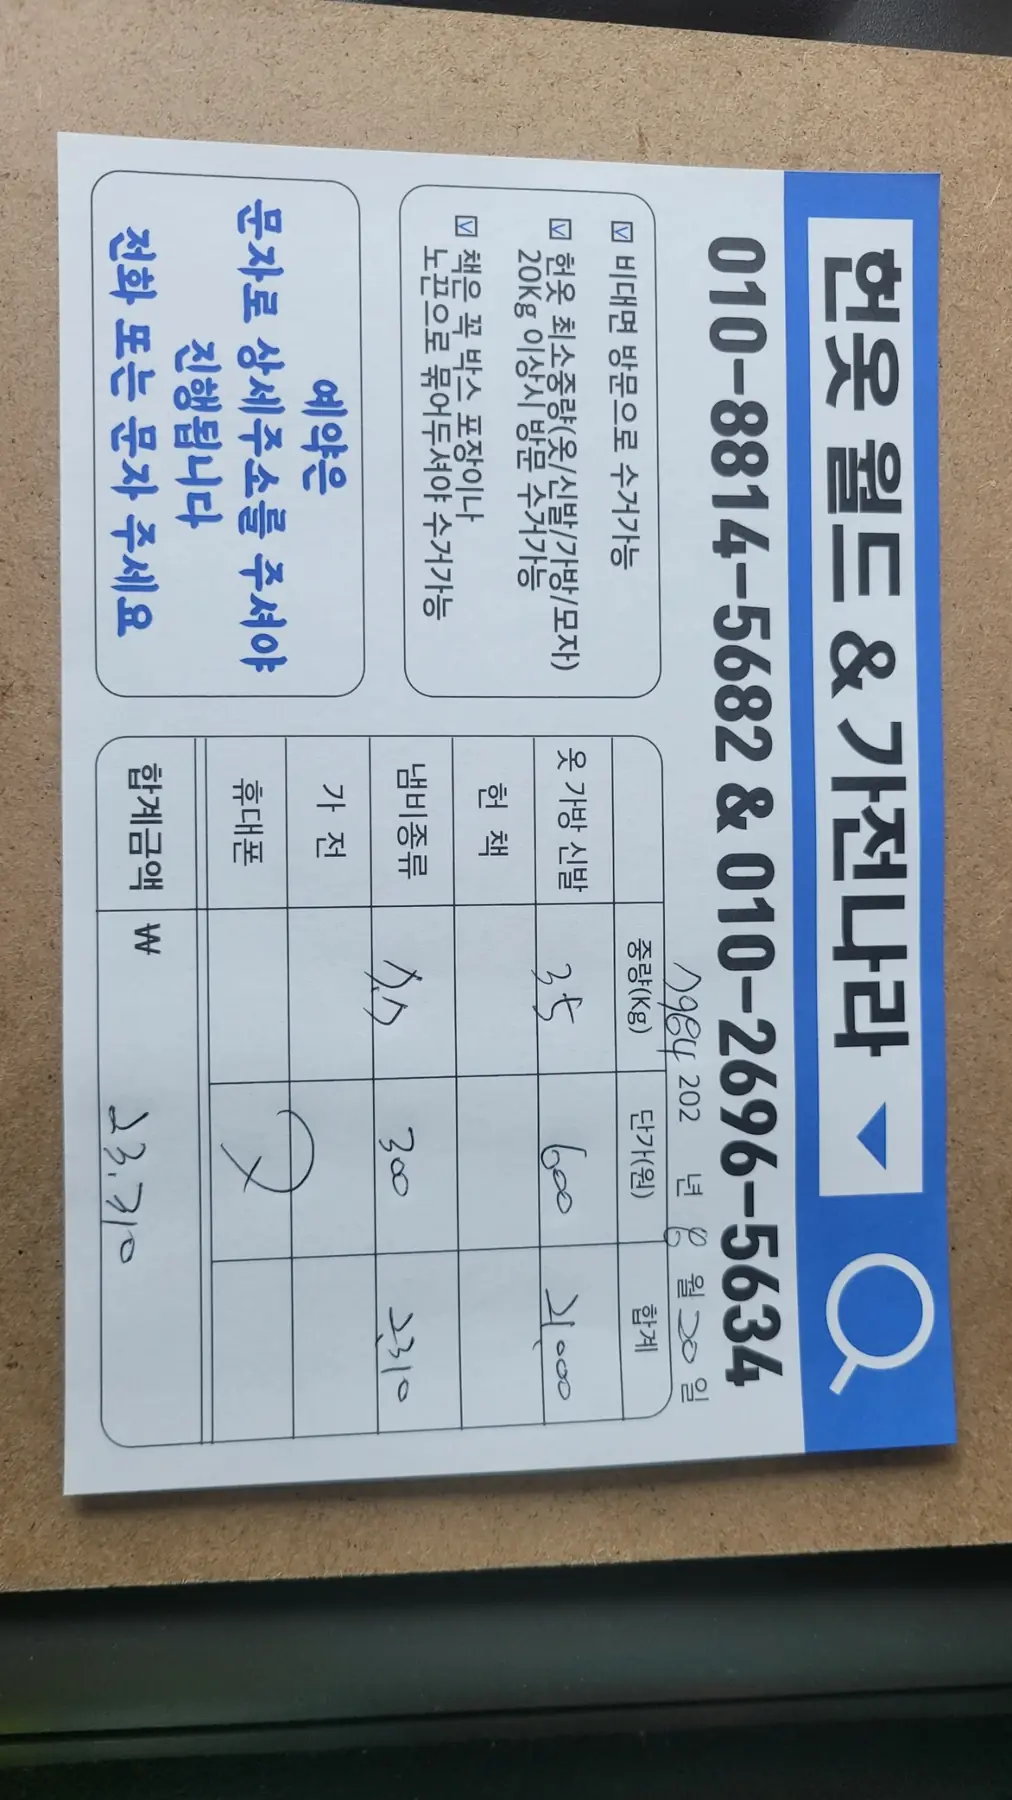 헌옷 월드 & 가전나라
010-8814-5682 & 010-2696-5634
비대면 방문으로 수거가능
헌옷 최소중량(옷/신발/가방/모자)
20Kg 이상시 방문 수거가능
책은 꼭 박스 포장이나
노끈으로 묶어두셔야 수거가능
예약은
문자로 상세주소를 주셔야
진행됩니다
전화 또는 문자 주세요
202 년 8 월 20 일
중량(Kg) 단가(원) 합계
옷 가방 신발 35 600 21,000
헌 책
냄비종류 300 2310
가 전
휴대폰
합계금액 ₩ 23,310